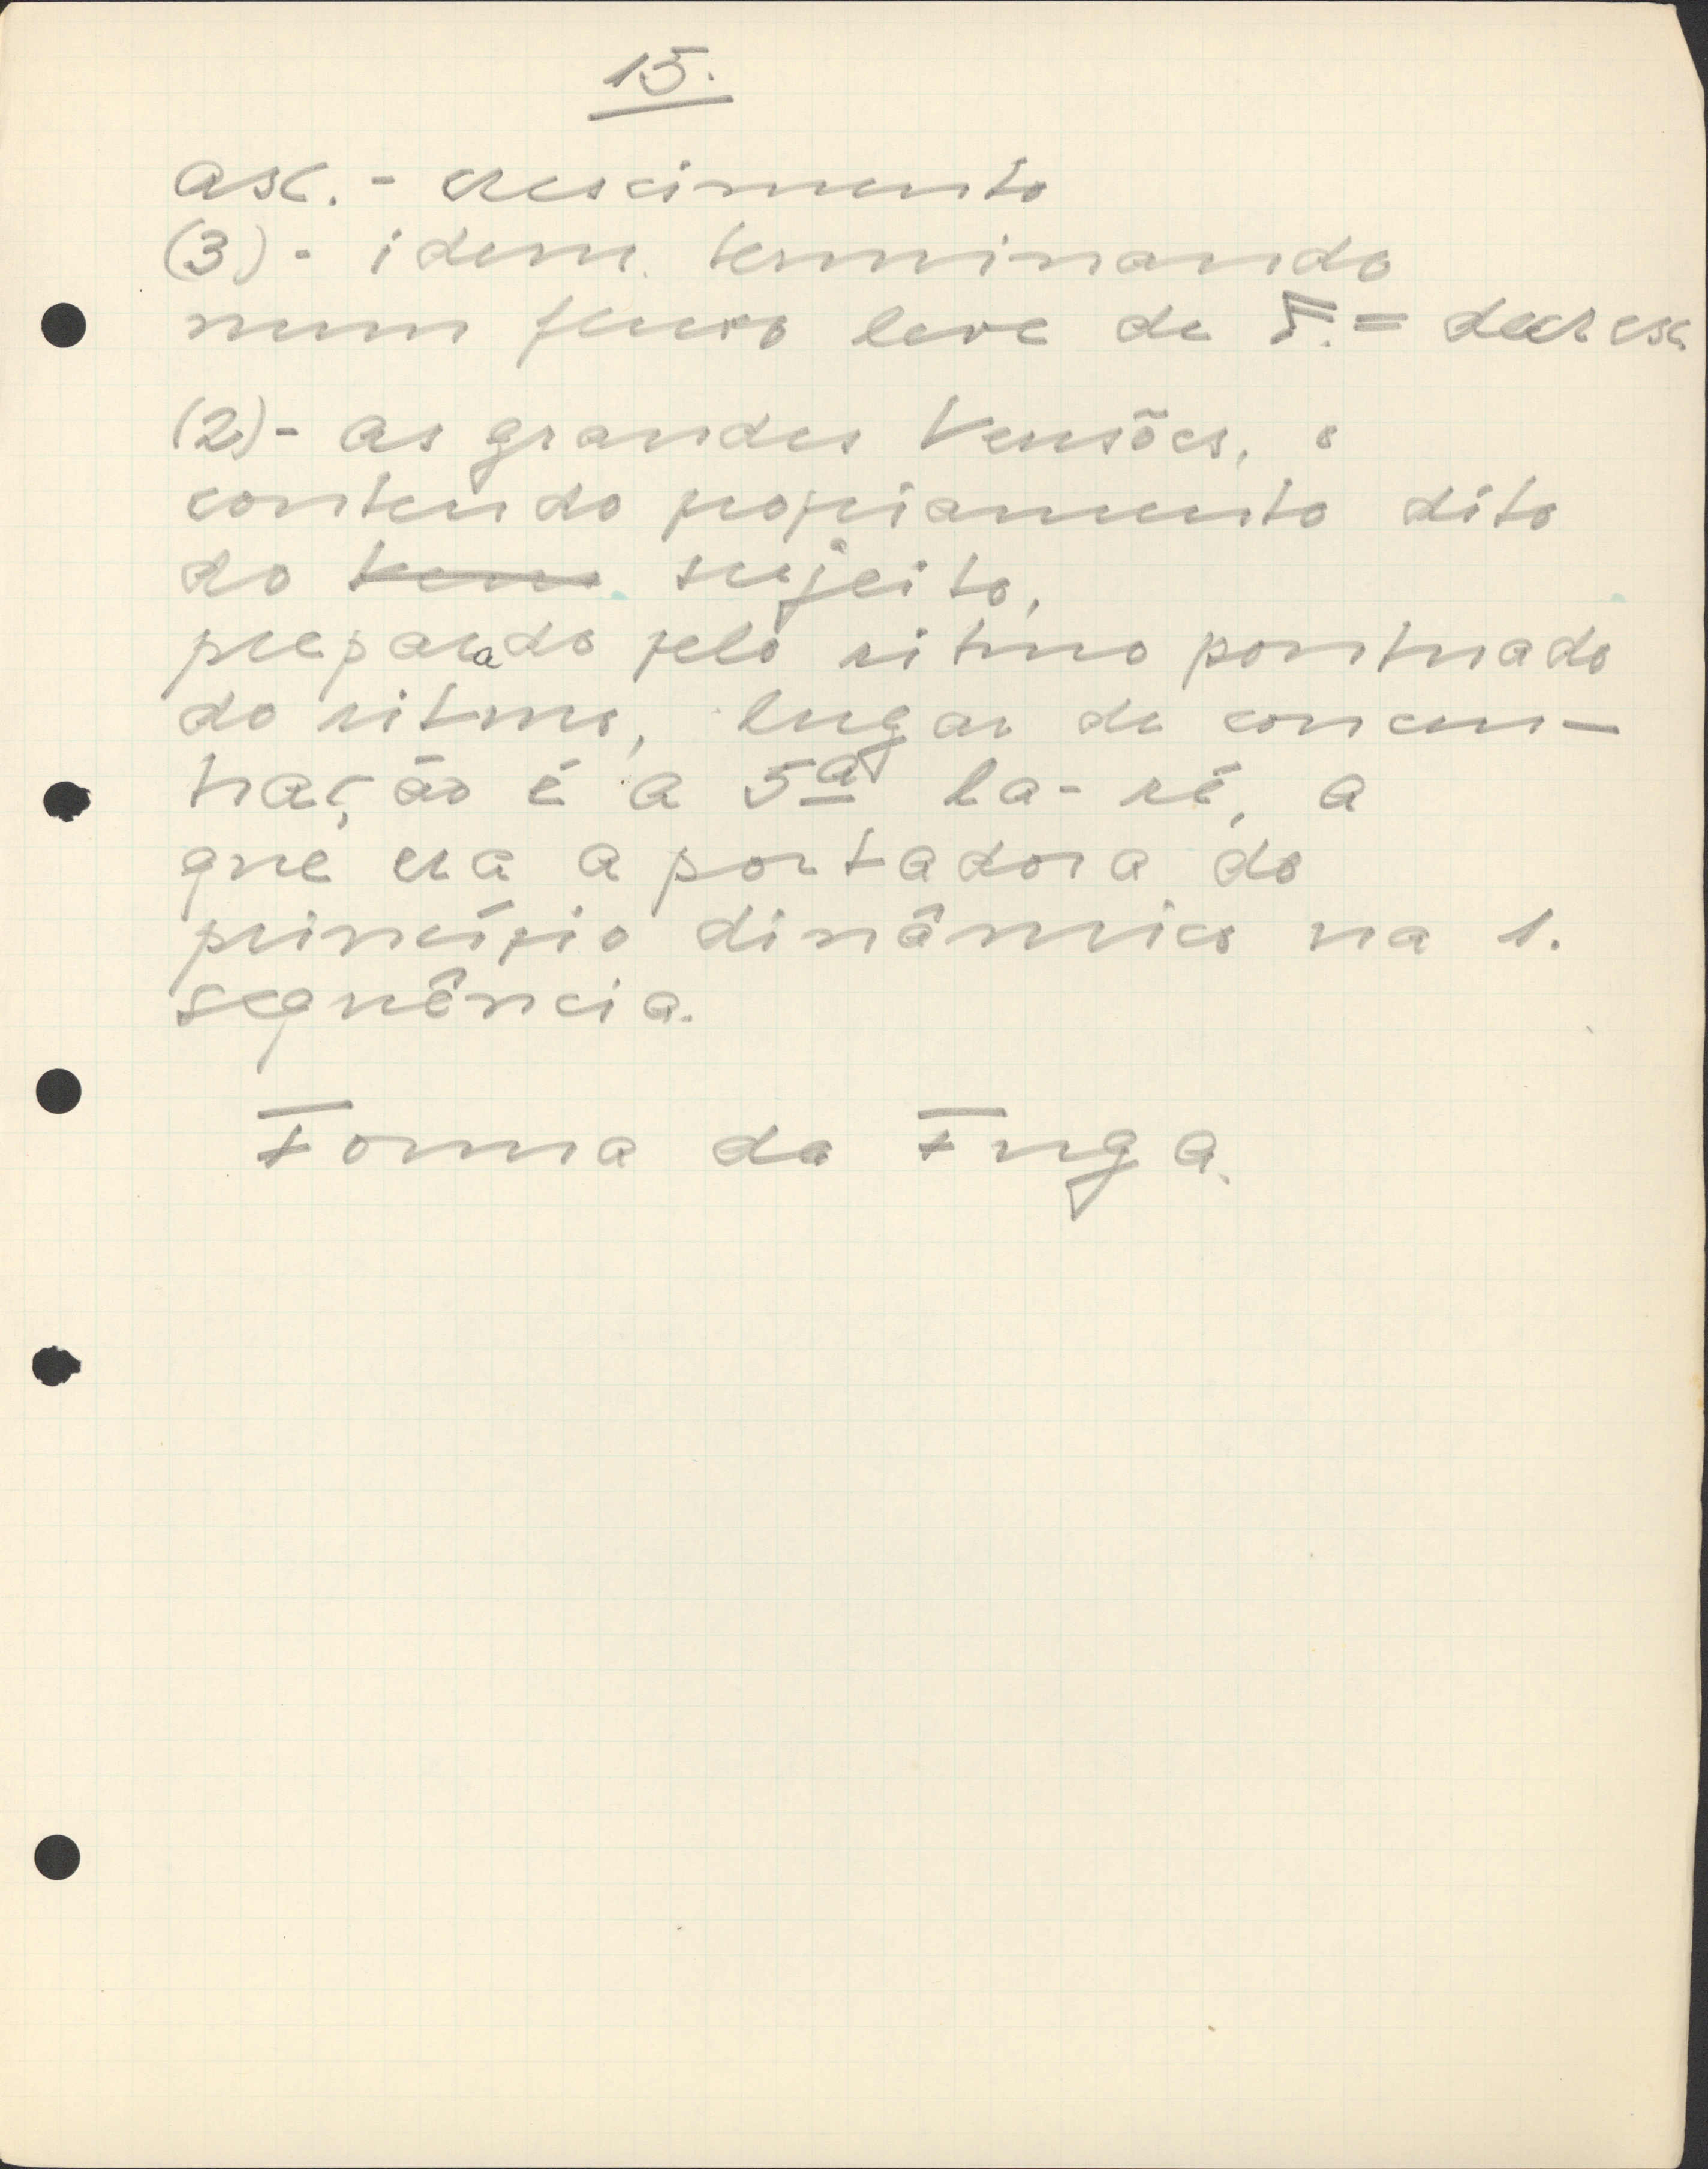 15.
asc. - crescimento
(3) - idem. terminando
num fluxo leve de F. = decresc.
(2) - as grandes tensões, o
contendo propriamento dito
do tema sujeito,
preparado pelo ritmo pontuado
do ritmo, lugar de concen-
tração é a 5ª la-ré, a
que era a portadora do
princípio dinâmico na 1.
sequência.
Forma da Fuga.